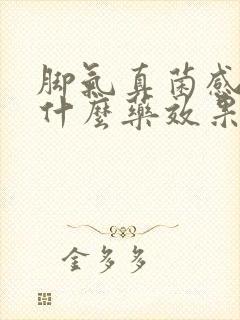 脚氣真菌感
什麼藥效果
金多多